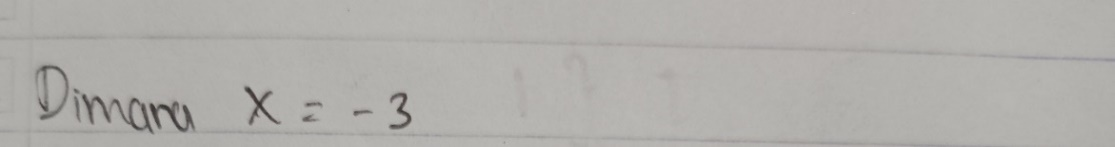 Dimana x = -3